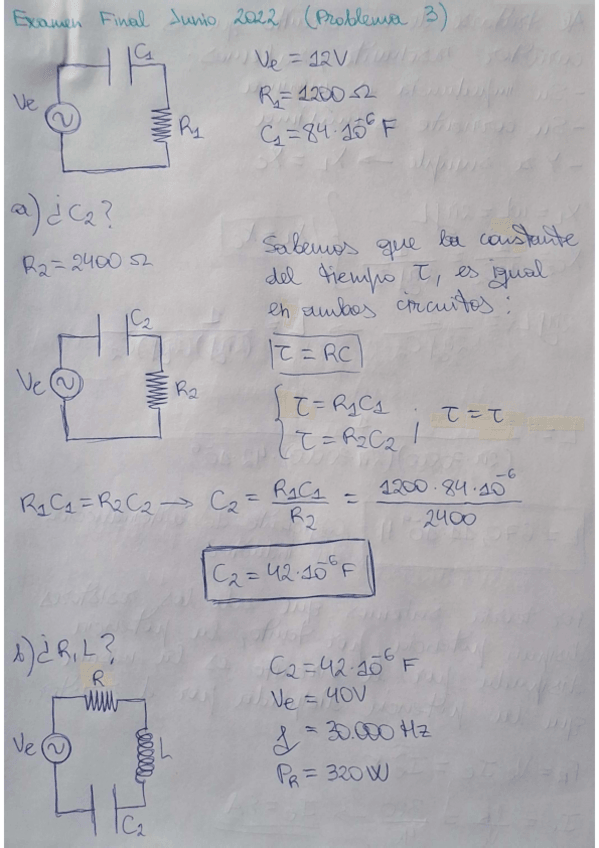 Examen Final Junio 2022 (Problema 3)
C1
Ve
R1
Ve = 12V
R1 = 1200 Ω
C1 = 84·10⁻⁶ F
a) ¿C2?
R2 = 2400 Ω
Sabemos que la constante
del tiempo τ, es igual
en ambos circuitos:
τ = RC
C2
Ve
R2
τ = R1C1 ; τ = τ
τ = R2C2
R1C1 = R2C2 → C2 = R1C1 / R2 = 1200·84·10⁻⁶ / 2400
C2 = 42·10⁻⁶ F
b) ¿R, L?
R
Ve
L
C2
C2 = 42·10⁻⁶ F
Ve = 40V
f = 30.000 Hz
PR = 320 W